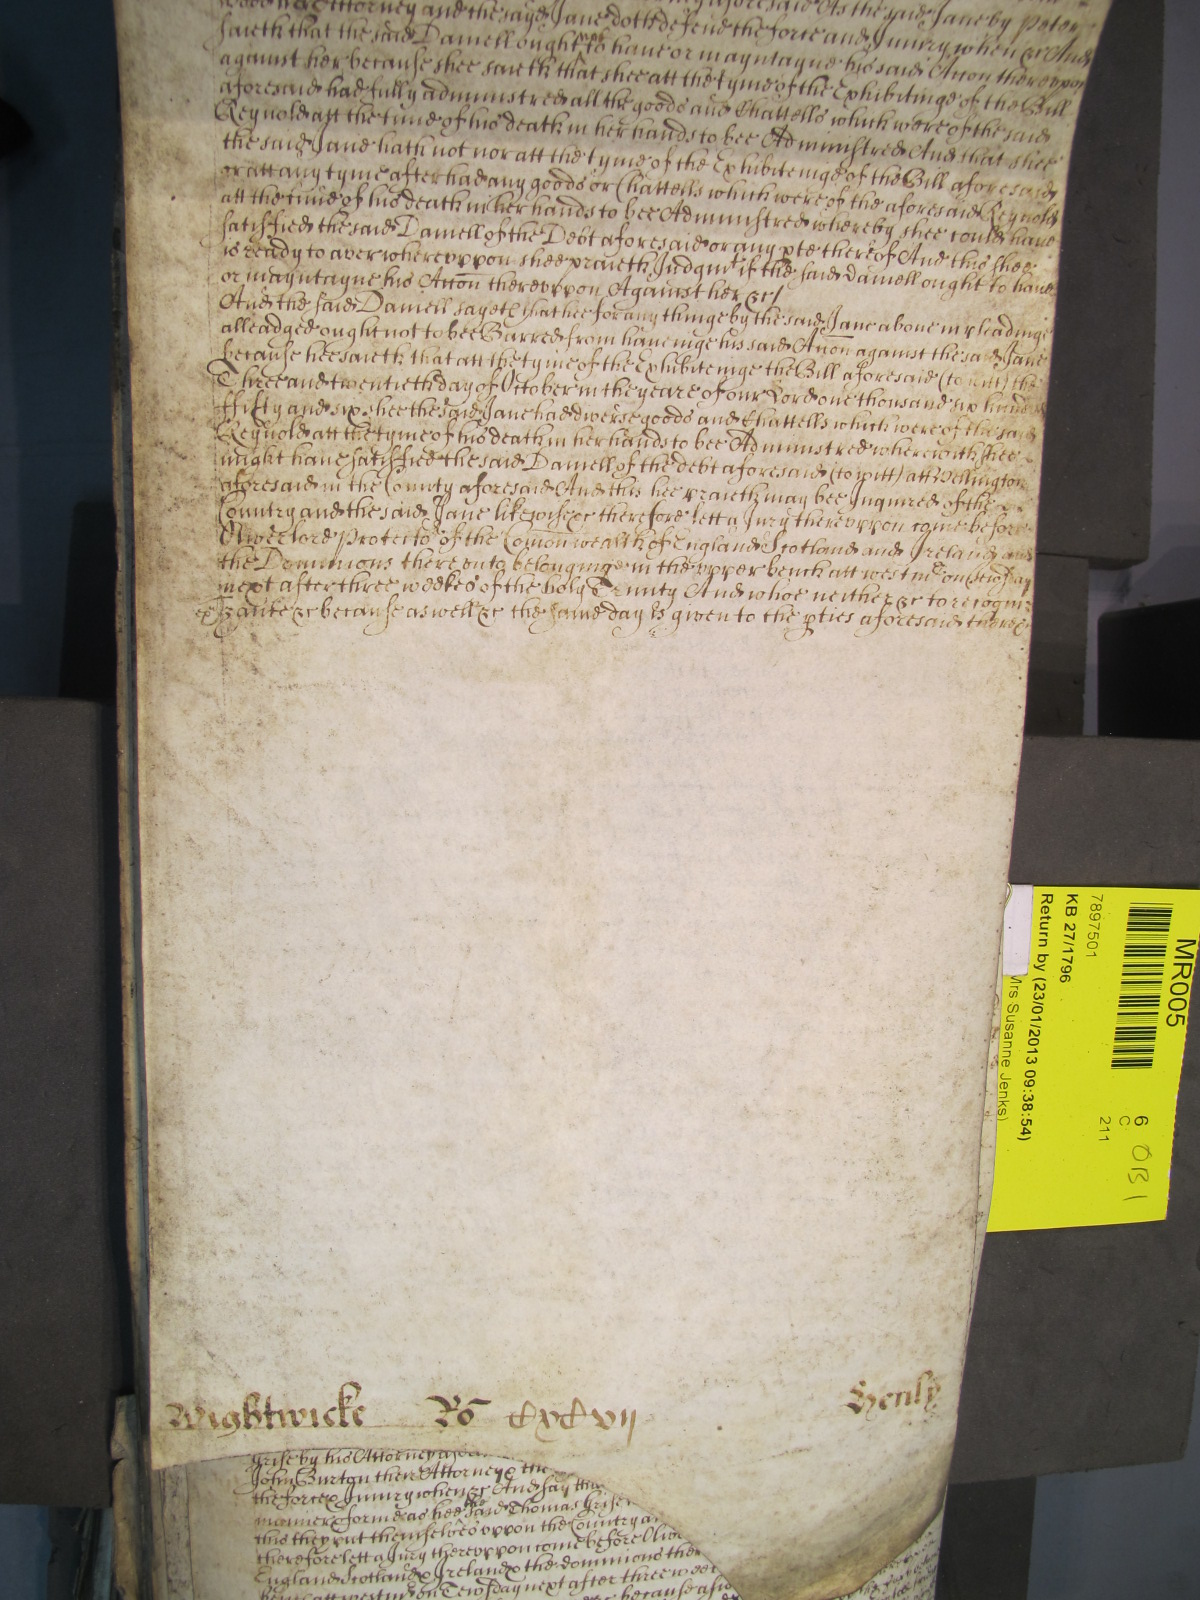 Attorney and the sayd Jane doth defend the force and Injury when &c And
saieth that the said Daniell ought not to have or mayntayne his said Accon thereuppon
against her because shee saieth that shee att the tyme of the Exhibitinge of the Bill
aforesaid had fully administred all the goods and Chattells which were of the said
Reynold att the time of his death in her hands to bee Administred And that shee
the said Jane hath not nor att the tyme of the Exhibiteinge of the Bill aforesaid
or att any tyme after had any goods or Chattells which were of the aforesaid Reynold
att the time of his death in her hands to bee Administred whereby shee could have
satisfied the said Daniell of the Debt aforesaid or any pte thereof And this shee
is ready to aver whereuppon shee praieth Judgmt if the said Daniell ought to have
or mayntayne his Accon thereuppon Against her &c /
And the said Daniell sayeth that hee for any thinge by the said Jane above in pleadinge
alleadged ought not to bee Barred from haveinge his said Accon against the said Jane
because hee saieth that att the tyme of the Exhibiteinge the Bill aforesaid (to witt) the
Three and twentieth day of October in the yeare of our Lord one thousand six hundred
ffifty and six shee the said Jane had diverse goods and Chattells which were of the said
Reynold att the tyme of his death in her hands to bee Administred wherewith shee
might have satisfied the said Daniell of the debt aforesaid (to witt) att Wellington
aforesaid in the County aforesaid And this hee praieth may bee Inquired of the
Country and the said Jane likewise &c therefore lett a Jury thereuppon come before
Oliver lord Protector of the Comonwealth of England Scotland and Ireland and
the Dominions thereunto belonging in the upper bench att westmr on Tewsday
next after three weekes of the holy Trinity And whoe neither &c to recogni
zance &c because aswell &c the same day is given to the pties aforesaid there &c
Wightwicke Ro cxcvii Henly
Grise by his Attorney
John Burton there Attorney &
the force & Injury when &c And say tha
manner & forme as hee the said Thomas Grise
this they put themselves uppon the Country a
therefore lett a Jury thereuppon come before Olive
England Scotland & Ireland & the dominions ther
att westmr on Tewsday next after three wee
because as
MR005
7897501
KB 27/1796
Return by (23/01/2013 09:38:54)
Mrs Susanne Jenks)
6
C
211
OB1